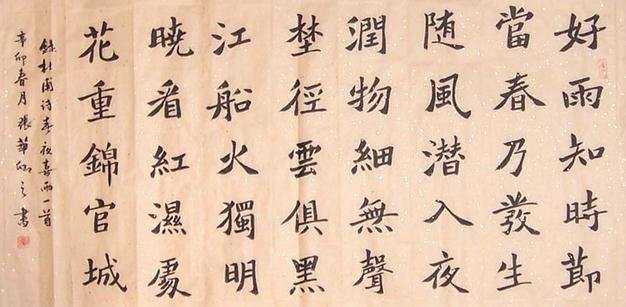 好雨知時節
當春乃發生
随風潜入夜
潤物細無聲
埜徑雲俱黑
江船火獨明
曉看紅濕處
花重錦官城
録杜甫诗春夜喜雨一首
辛卯春月張華之書